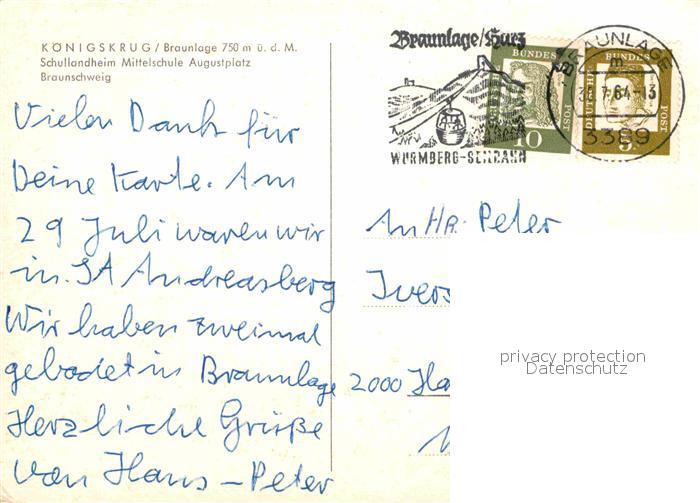 KÖNIGSKRUG / Braunlage 750 m ü. d. M.
Schullandheim Mittelschule Augustplatz
Braunschweig
Braunlage/Harz
WURMBERG-SEILBAHN
BRAUNLAGE
3389
DEUTSCHE BUNDESPOST
10
5
Vielen Dank für
Deine Karte. Am
29 Juli waren wir
in. St Andreasberg
Wir haben zweimal
gebadet in Braunlage
Herzliche Grüße
von Hans – Peter
An Hr. Peter
Ivers
2000 Ha
privacy protection
Datenschutz